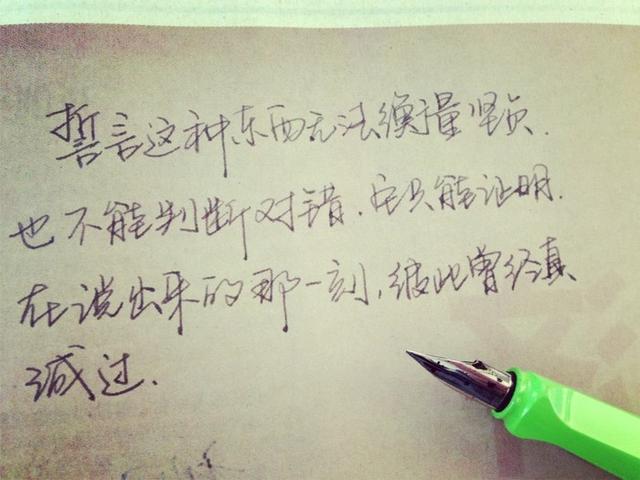 誓言这种东西无法衡量坚贞.
也不能判断对错.它只能证明.
在说出来的那一刻,彼此曾经真
诚过.